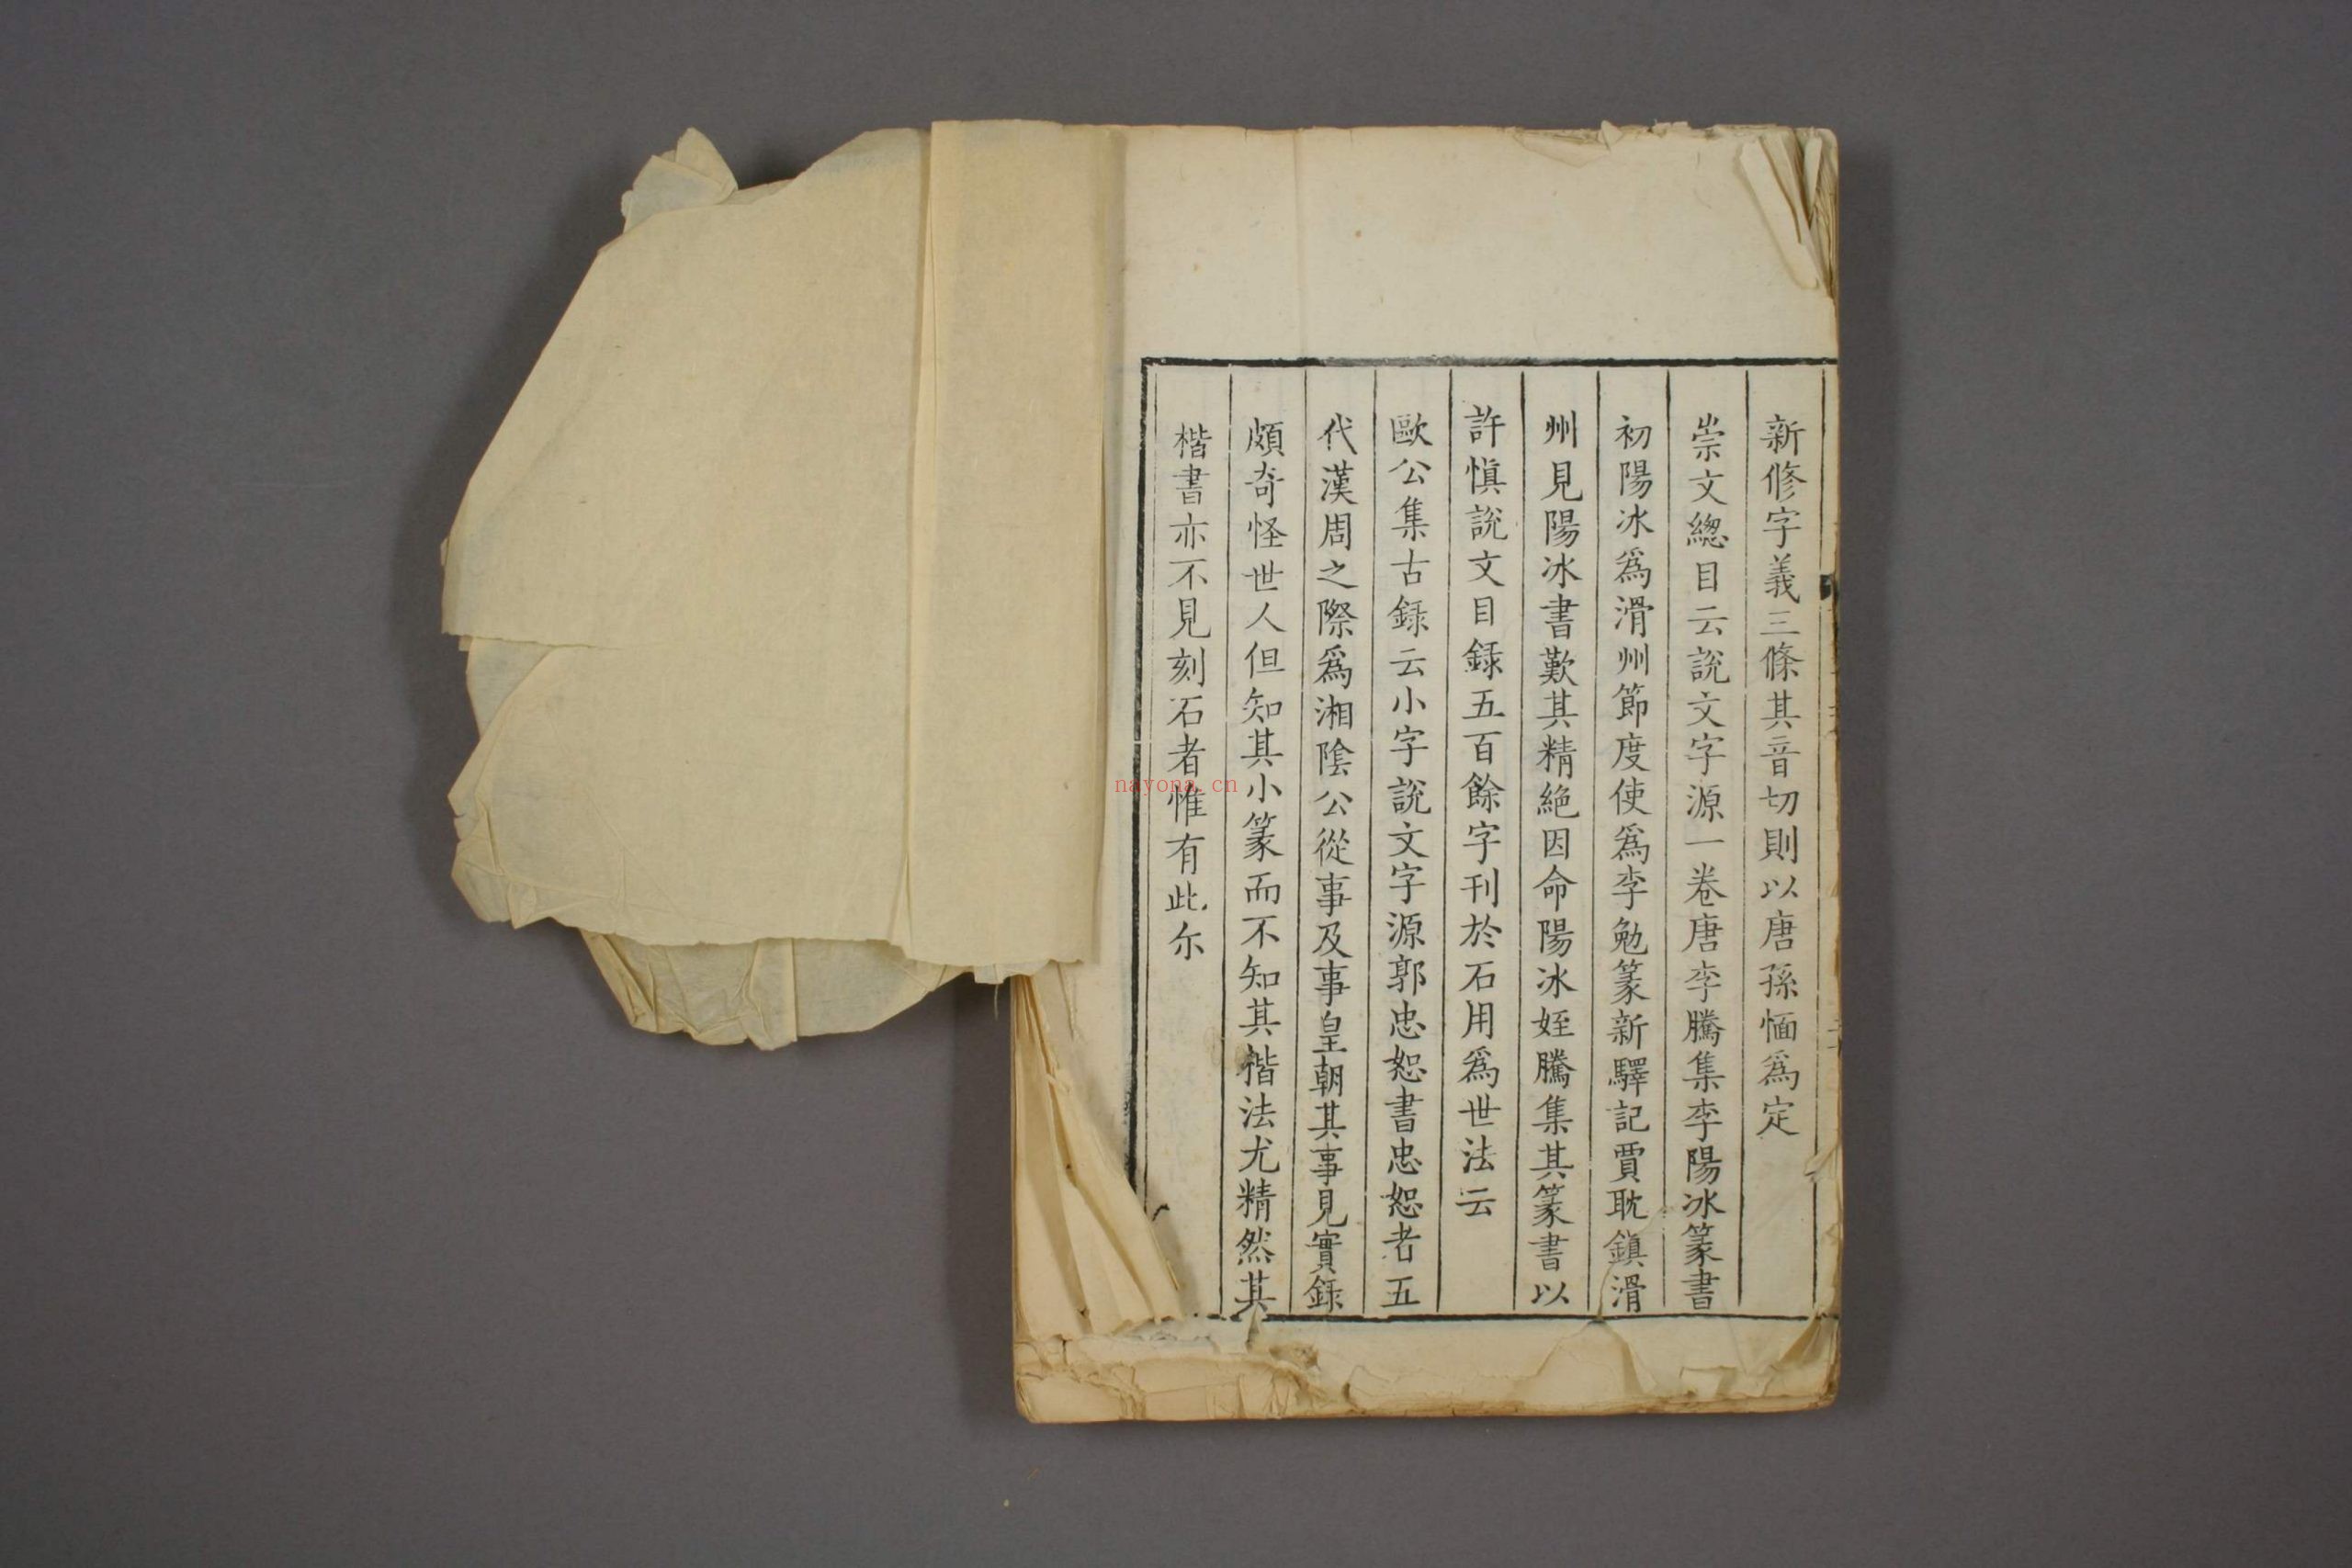 新修字義三條其音切則以唐孫愐爲定
崇文緫目云說文字源一卷唐李騰集李陽冰篆書
初陽冰爲滑州節度使爲李勉篆新驛記賈耽鎭滑
州見陽冰書歎其精絶因命陽冰姪騰集其篆書以
許愼說文目録五百餘字刊於石用爲世法云
歐公集古録云小字說文字源郭忠恕書忠恕者五
代漢周之際爲湘陰公從事及事皇朝其事見實録
頗奇怪世人但知其小篆而不知其楷法尤精然其
楷書亦不見刻石者惟有此尓
nayona.cn